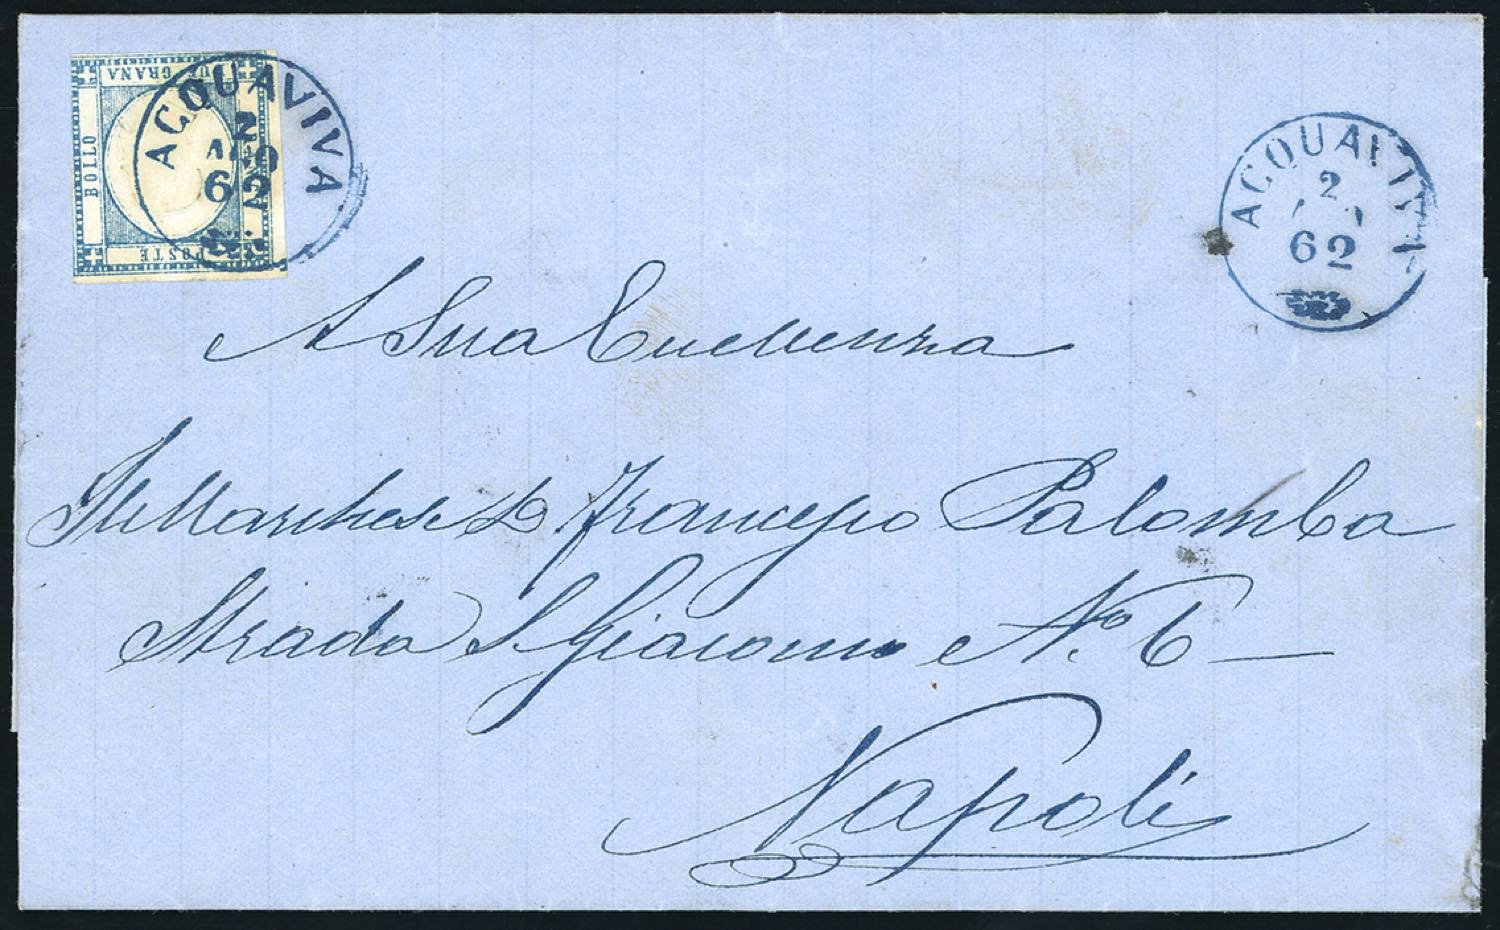 ACQUAVIVA
2
AGO
62
GRANA
BOLLO
POSTE
ACQUAVIVA
2
62
A Sua Eccellenza
Il Marchese D. Francesco Palomba
Strada S Giacomo N.o 6
Napoli